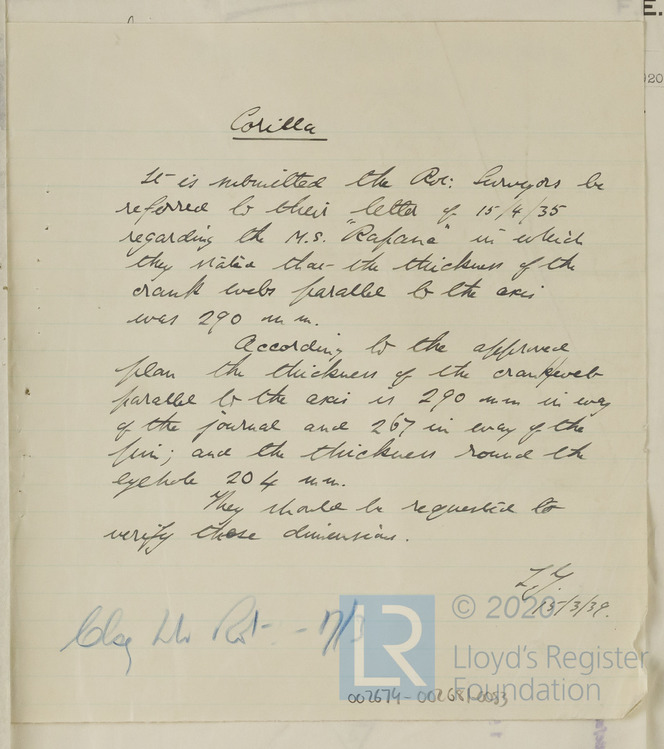 E.
20
Corilla
It is submitted the Rot: Surveyors be
referred to their letter of 15/4/35
regarding the M.S. "Rapana" in which
they stated that the thickness of the
crank webs parallel to the axis
was 290 m m.
According to the approved
plan the thickness of the crankweb
parallel to the axis is 290 mm in way
of the journal and 267 in way of the
pin; and the thickness round the
eyehole 204 mm.
They should be requested to
verify these dimensions.
15/3/39.
Rot - 17/3
LR
© 2020
Lloyd's Register
Foundation
002674-002681-0083